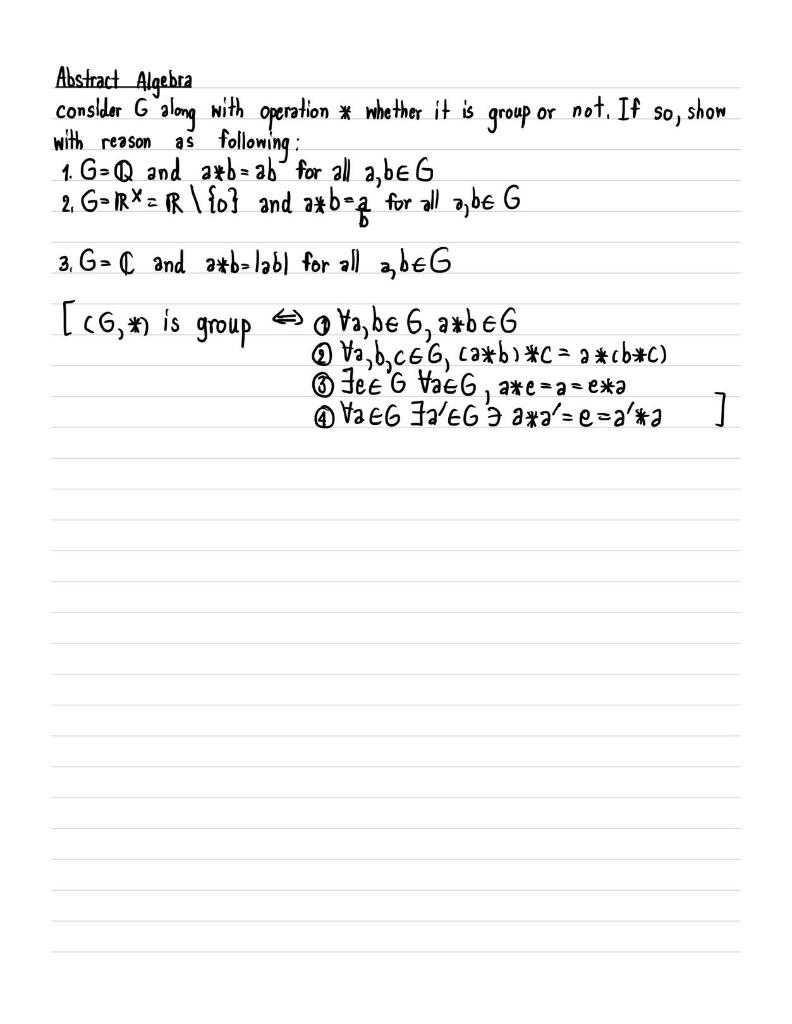 Abstract Algebra
consider G along with operation * whether it is group or not. If so, show
with reason as following:
1. G=ℚ and a*b=ab for all a,b∈G
2. G=ℝ^×=ℝ\{0} and a*b=a/b for all a,b∈G
3. G=ℂ and a*b=|ab| for all a,b∈G
[(G,*) is group ⇔ ① ∀a,b∈G, a*b∈G
② ∀a,b,c∈G, (a*b)*c = a*(b*c)
③ ∃e∈G ∀a∈G, a*e=a=e*a
④ ∀a∈G ∃a′∈G ∋ a*a′=e=a′*a ]